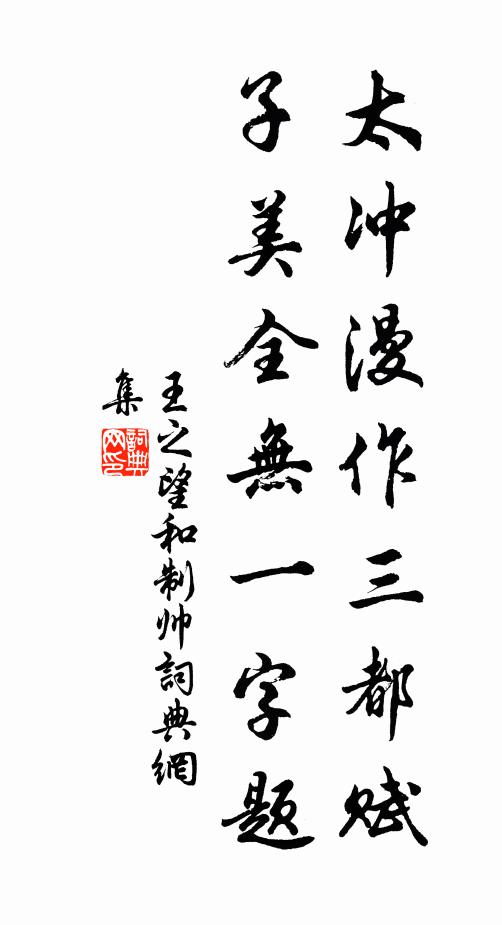 太冲漫作三都赋
子美全無一字題
王之望和制帅詞典網
集
詞典网印